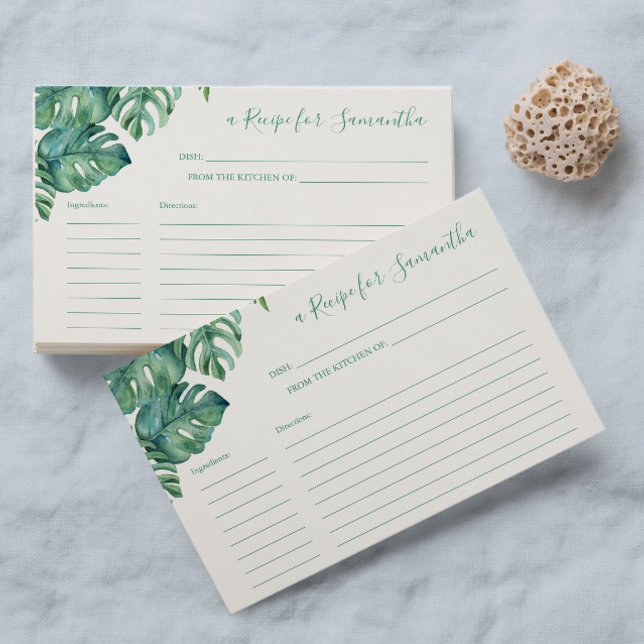 a Recipe for Samantha
DISH:
FROM THE KITCHEN OF:
Ingredients: Directions:
a Recipe for Samantha
DISH:
FROM THE KITCHEN OF:
Directions:
Ingredients: